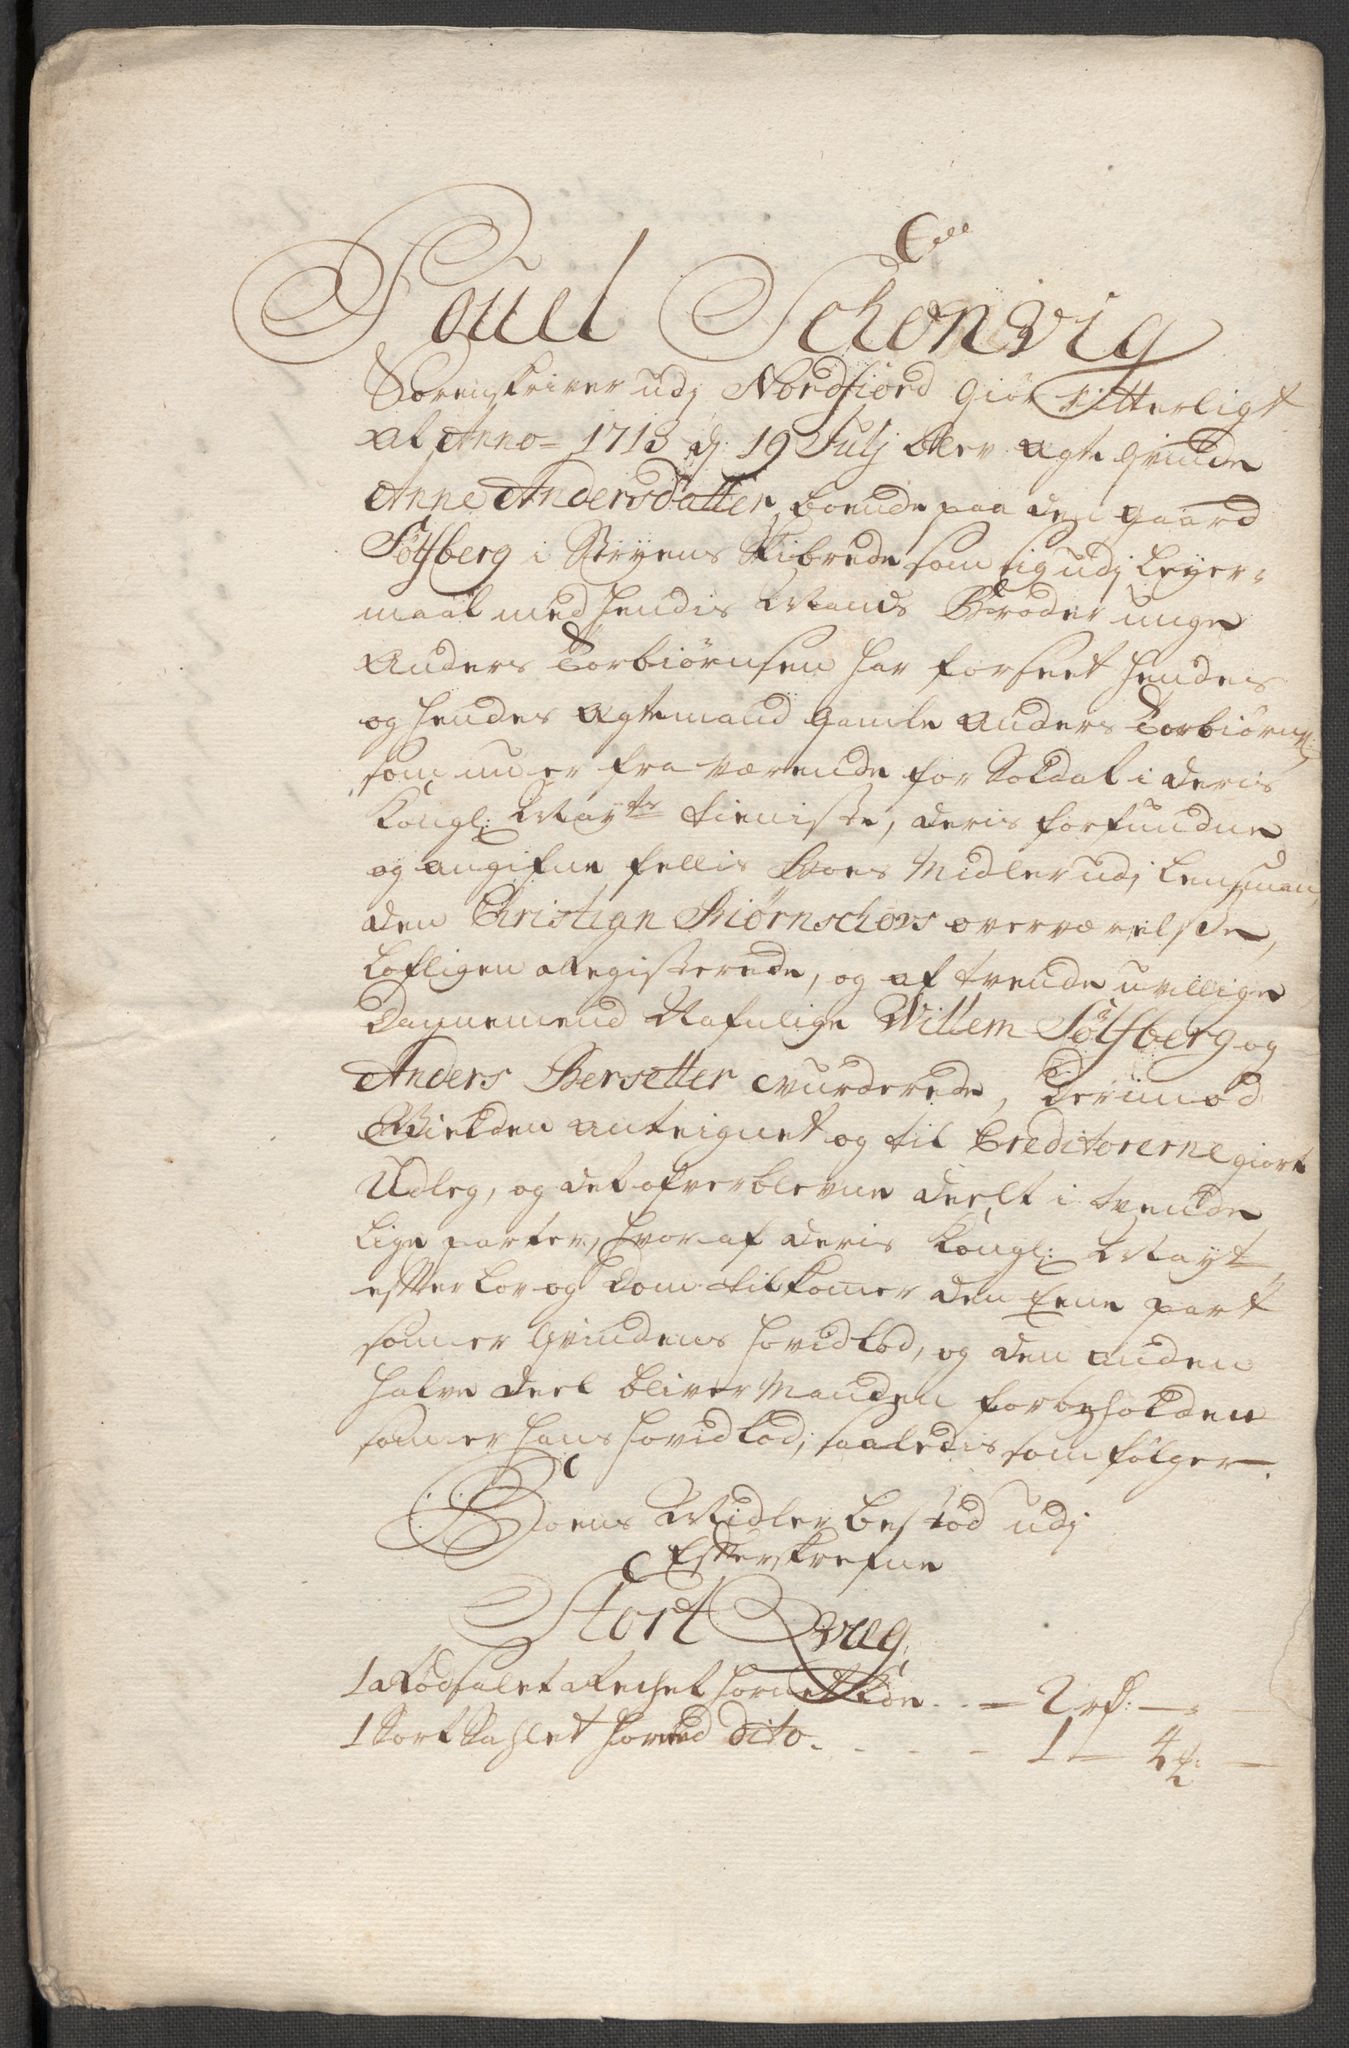 Pouel Schønvig
Sorenskriver udj Nordfiord Giør Vitterligt
at Anno 1713 d: 19 Julj blev Ægte Qvinde
Anne Andersdatter, boende paa den gaard
Sølfberg i Stryens Skibrede som sig udj Leyer-
maal med hendis Mands Broder unge
Anders Torbiørnsen har forseet hendes
og hendes Ægtemand gamle Anders Torbiørns:
som nu er fra værende for Soldat i deris
Kongl: Mayts tieniste, deris forfundne
og angifne fellis Boes Midler udj Lensman
den Christian Biørnschovs overværelsse,
Lofligen Registerede, og af tvende uvillige
Dannemend Nafnlige Willem Sølfberg og
Anders Bersetter vurderede, Derimod
Gielden anteignet og til Creditorerne giort
Udleg, og det ofverblevne deelt i tvende
lige parter, hvor af deris Kongl: Mayt
effter Lov og Dom tilkomer den Eene part
som er Qvindens hovidlod, og den anden
halve deel bliver Manden forbeholden
som er hans hovidlod, saaledis som følger.
Boens Midler bestod udj
Effterskrefne
Stort Qvæg,
1 Rødsalet hornet Koe - 2 rd: -
1 Sort Sahlet horned dito - 1 - 4 ß: -